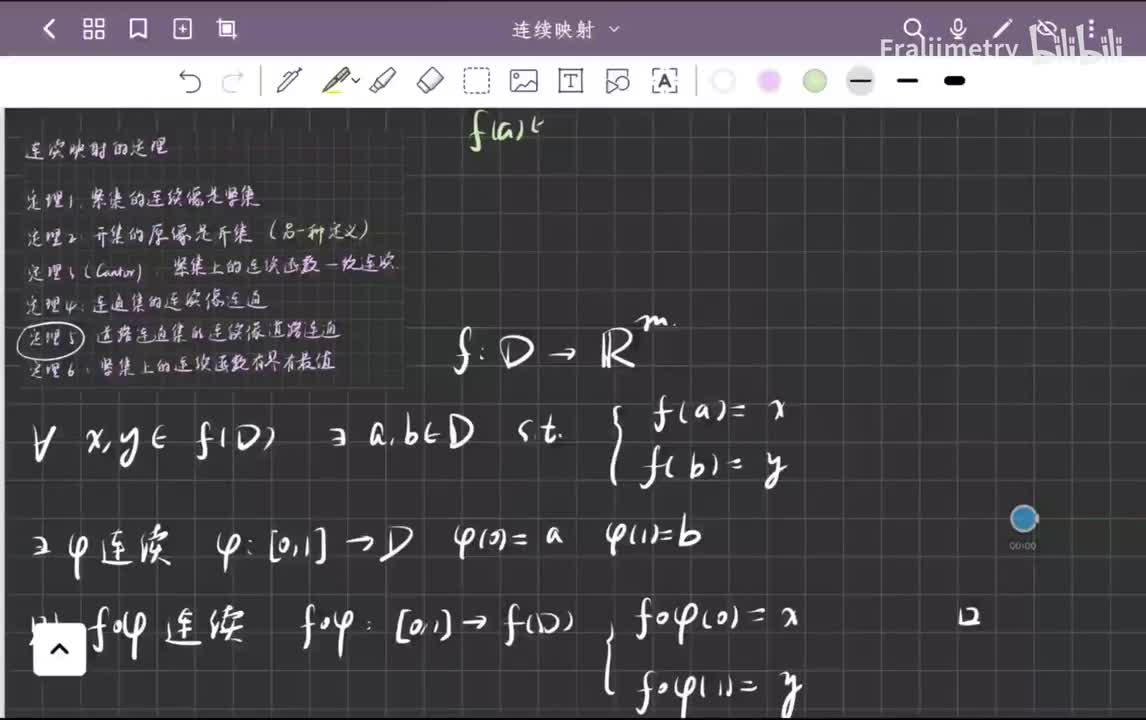 连续映射
Fraljimetry bilibili
f(a) t
连续映射的定理
定理1. 紧集的连续像是紧集
定理2. 开集的原像是开集 (另一种定义)
定理3 (Cantor). 紧集上的连续函数一致连续.
定理4: 连通集的连续像连通
定理5 道路连通集的连续像道路连通
定理6: 紧集上的连续函数有界有最值
f: D → ℝᵐ.
∀ x, y ∈ f(D) ∃ a, b ∈ D s.t. { f(a) = x
f(b) = y
∃ φ 连续 φ: [0,1] → D φ(0) = a φ(1) = b
f∘φ 连续 f∘φ: [0,1] → f(D) { f∘φ(0) = x □
f∘φ(1) = y
00:00